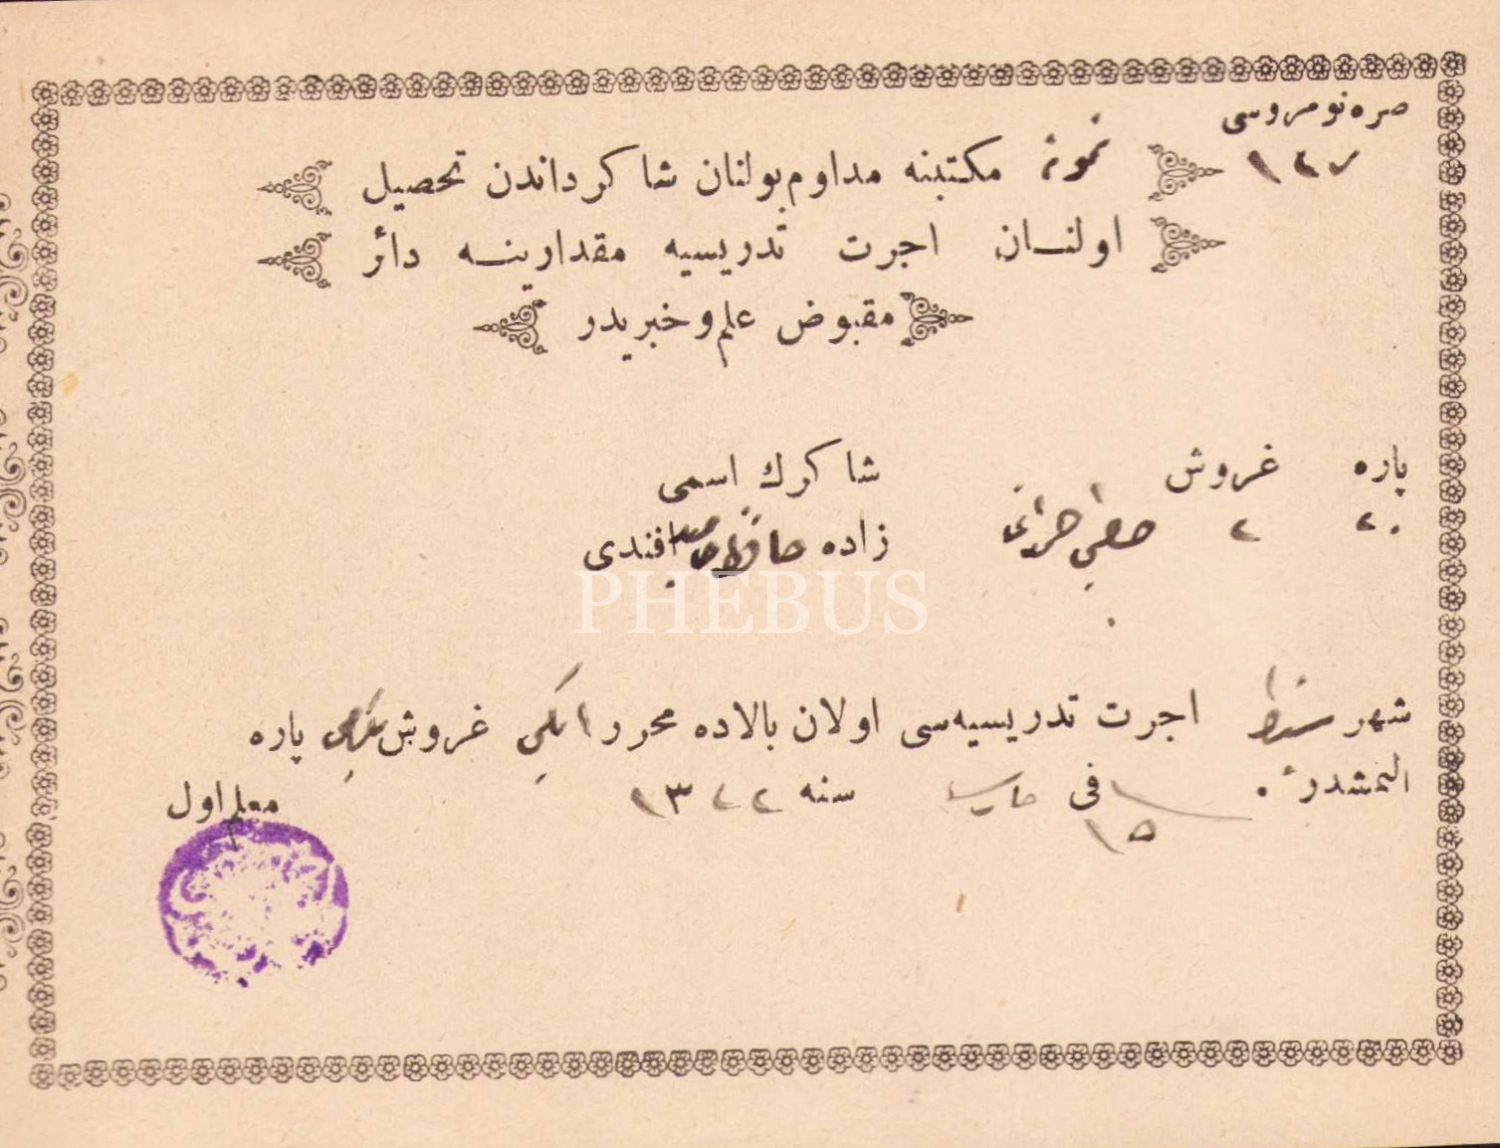 صره نومروسی
نمونهٔ مكتبنه مداوم بولنان شاكرداندن تحصیل
اولنـان اجرت تدریسیه مقدارینـه دائر
مقبوض علم و خبریدر
پاره غروش شاكرك اسمی
٢٠ ٢ زاده حافظ افندی
PHEBUS
شهر اجرت تدریسیه‌سی اولان بالاده محرر ایكی غروش یكرمی پاره
النمشدر . فی ١٥ مارت سنه ١٣٢٢
معلم اول